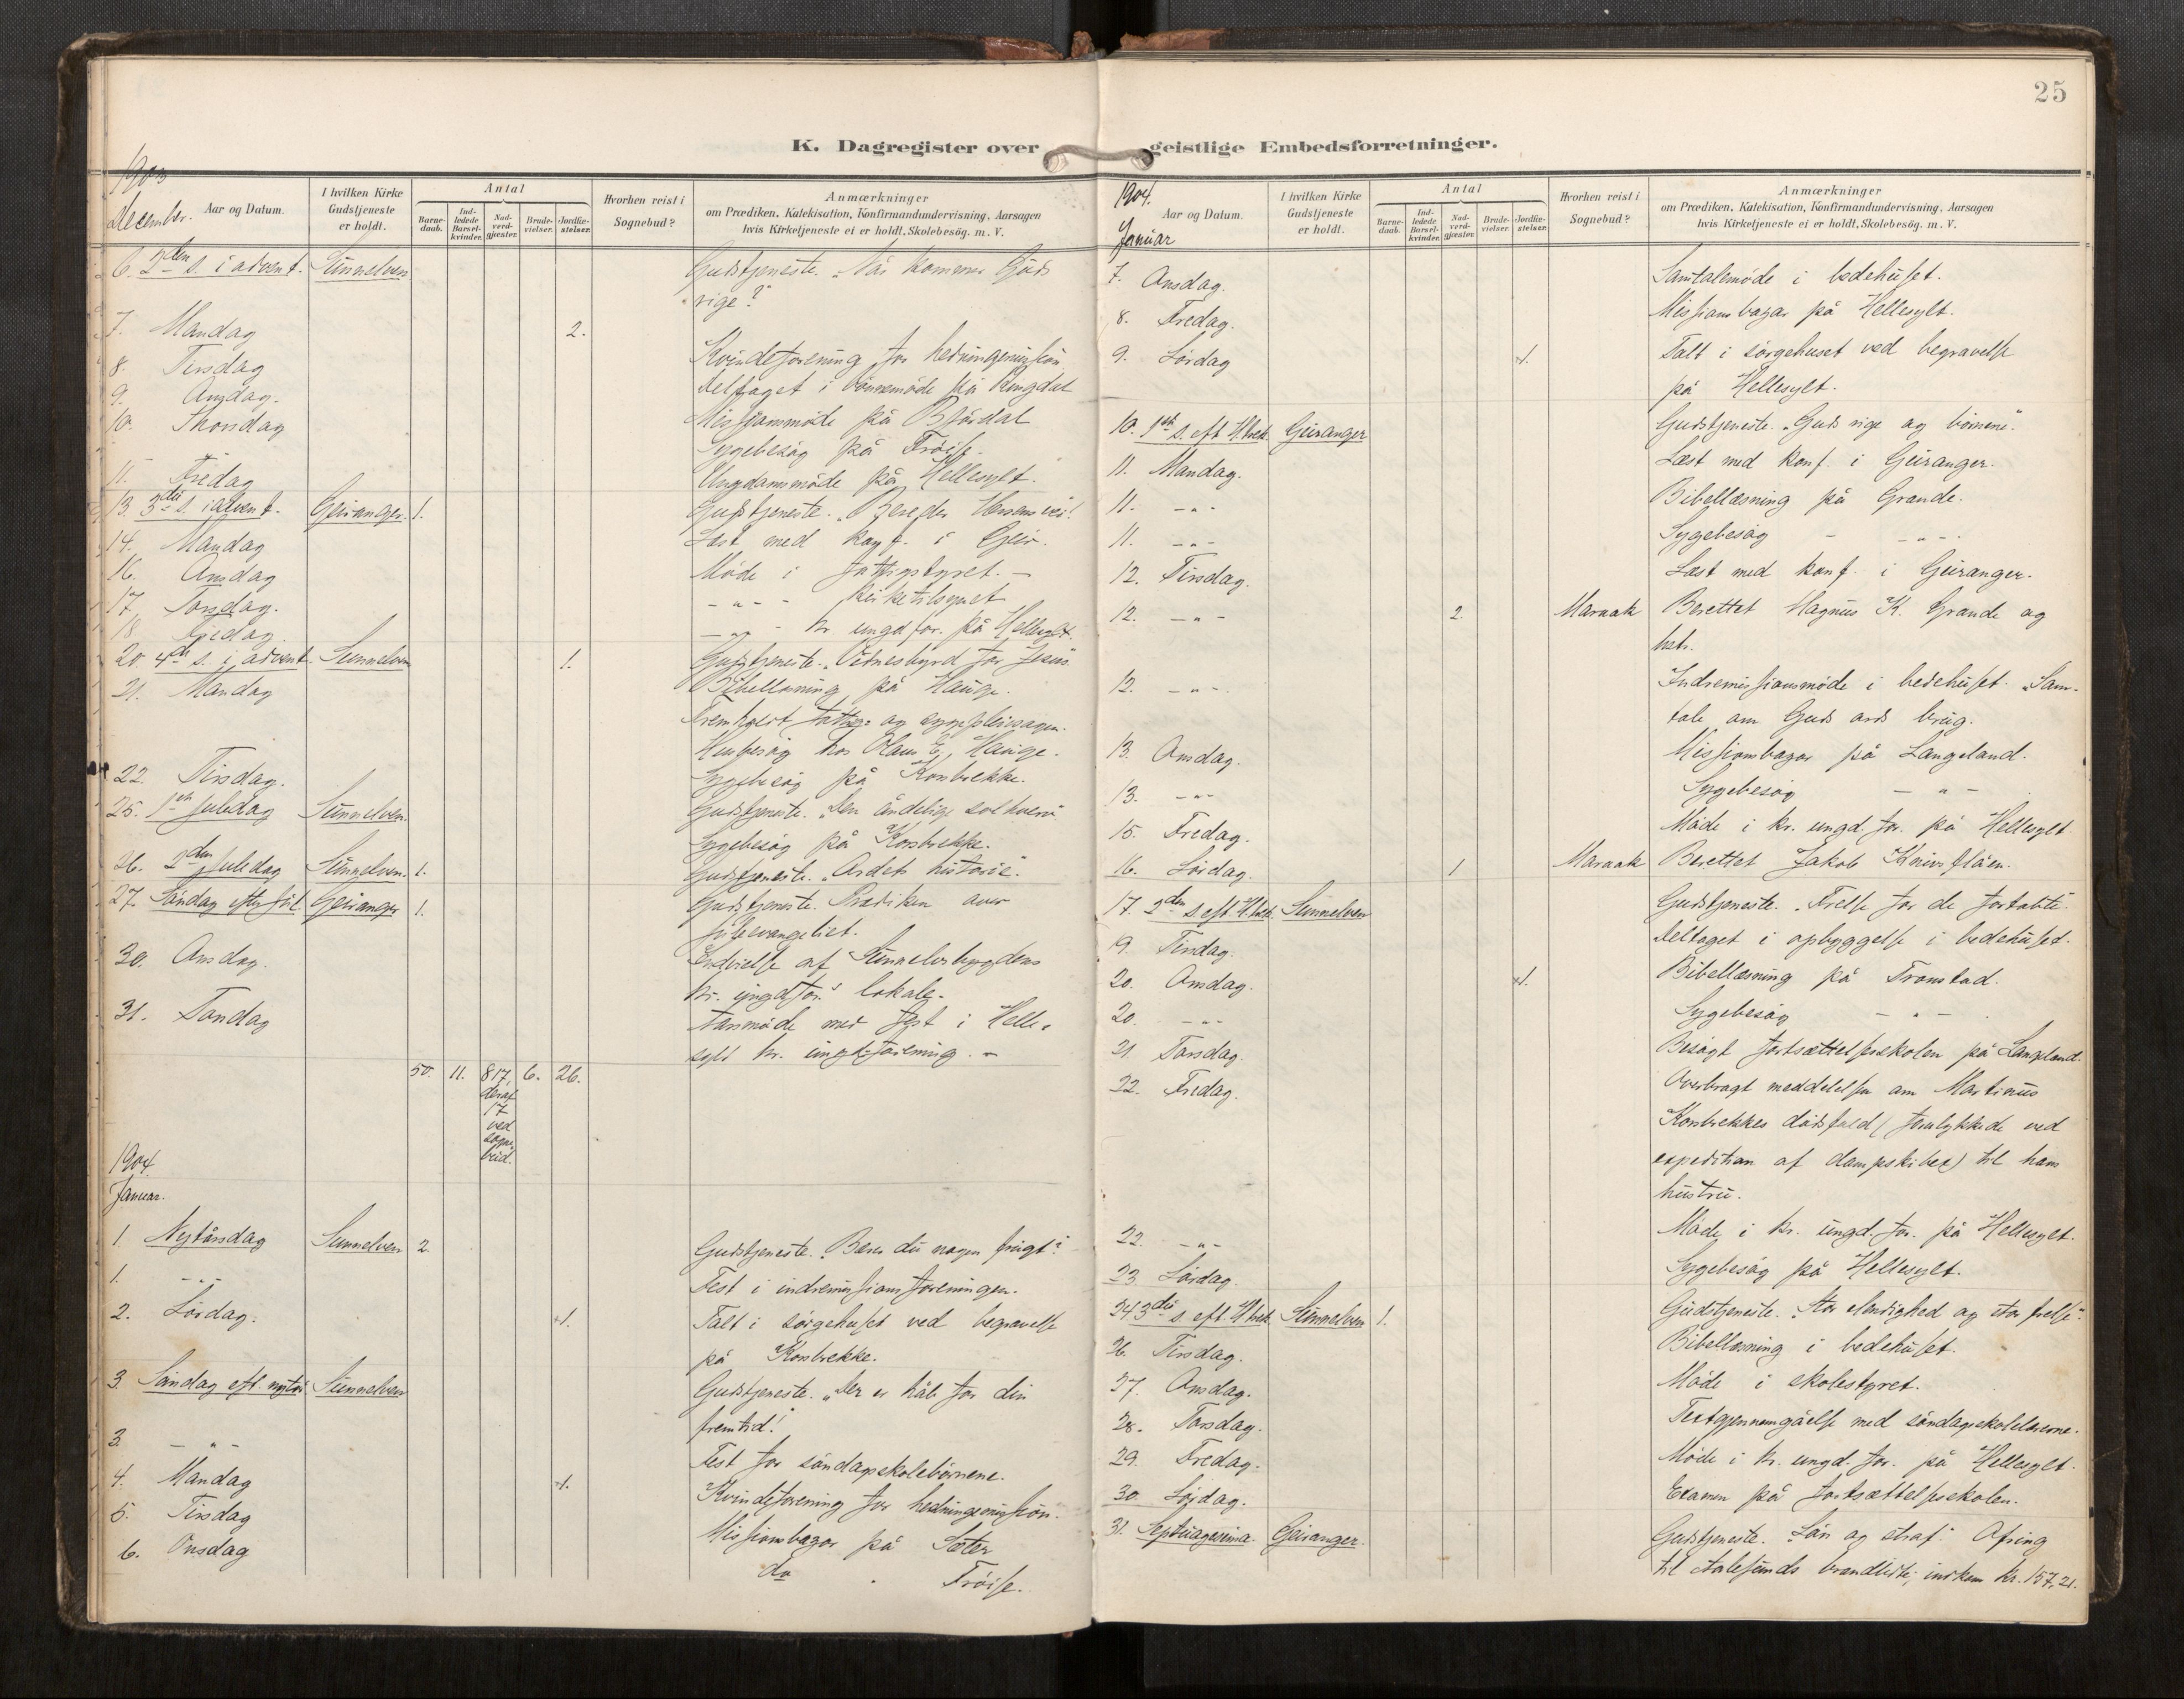 25
K. Dagregister over geistlige Embedsforretninger.
1903
December.
Aar og Datum.
I hvilken Kirke Gudstjeneste er holdt.
Antal
Barne-daab.
Ind-ledede Barsel-kvinder.
Nad-verd-gjester.
Brude-vielser.
Jordfæ-stelser.
Hvorhen reist i Sognebud?
Anmærkninger
om Prædiken, Katekisation, Konfirmandundervisning, Aarsagen
hvis Kirketjeneste ei er holdt, Skolebesög. m. V.
6. 2den s. i advent. Sunnelven Gudstjeneste. „Når kommer Guds
rige?"
7. Mandag 2.
8. Tirsdag Kvindeforening for hedningemission
9. Onsdag. Deltaget i bönnemöde på Ringdal
10. Thorsdag Missionsmöde på Björdal
Sygebesög på Fröise.
11. Fredag Ungdomsmöde på Hellesylt.
13. 3die s. i advent. Geiranger. 1. Gudstjeneste. „Bereder Herrens vei!
14. Mandag Læst med konf. i Geir.
16. Onsdag Möde i fattigstyret. –
17. Torsdag. – „ – kirketilsynet
18. Fredag. – „ – kr. ungd. for. på Hellesylt.
20. 4de s. i advent. Sunnelven 1. Gudstjeneste. „Vidnesbyrd for Jesus.
21. Mandag Bibellæsning på Hauge.
Husbesög hos Olaus E. Hauge.
22. Tirsdag. Sygebesög på Korsbrekke.
25. 1ste Juledag Sunnelven. Gudstjeneste. „Den åndelige solhverv
Sygebesög på Korsbrekke.
26. 2den Juledag Sunnelven. 1. Gudstjeneste. „Ordets historie".
27. Söndag efter jul. Geiranger 1. Gudstjeneste. Prædiken over
juleevangeliet.
30. Onsdag. Indvielse af Sunnelvsbygdens
kr. ungdfor.s lokale.
31. Torsdag Årsmöde med fest i Helle-
sylt kr. ungd. forening. –
50. 11. 817, 6. 26.
deraf
17
ved
sogne-
bud.
1904
Januar.
1. Nytårsdag Sunnelven 2. Gudstjeneste. „Bærer du nogen frugt?
1. – „ – Fest i indremissionsforeningen.
2. Lördag. 1. Talt i sörgehuset ved begravelse
på Korsbrekke.
3. Söndag eft. nytår Sunnelven Gudstjeneste. „Der er håb for din
fremtid!
3. – „ – Fest for söndagsskolebörnene.
4. Mandag 1. Kvindeforening for hedningemission.
5. Tirsdag Missionsbazar på Sæter
6. Onsdag do Fröise.
1904.
Januar
Aar og Datum.
I hvilken Kirke Gudstjeneste er holdt.
Antal
Barne-daab.
Ind-ledede Barsel-kvinder.
Nad-verd-gjester.
Brude-vielser.
Jordfæ-stelser.
Hvorhen reist i Sognebud?
Anmærkninger
om Prædiken, Katekisation, Konfirmandundervisning, Aarsagen
hvis Kirketjeneste ei er holdt, Skolebesög. m. V.
7. Onsdag. Samtalemöde i bedehuset.
8. Fredag. Missionsbazar på Hellesylt.
9. Lördag 1. Talt i sörgehuset ved begravelse
på Hellesylt.
10. 1ste s. eft. H 3 k. Geiranger Gudstjeneste. „Guds rige og börnene".
11. Mandag. Læst med konf. i Geiranger.
11. – „ – Bibellæsning på Grande.
11. – „ – Sygebesög – – „ –
12. Tirsdag. Læst med konf. i Geiranger.
12. – „ – 2. Maraak Berettet Magnus K. Grande og
hstr.
12. – „ – Indremissionsmöde i bedehuset. „Sam-
tale om Guds ords brug.
13. Onsdag. Missionsbazar på Langeland.
13. – „ – Sygebesög – „ –
15. Fredag. Möde i kr. ungd. for. på Hellesylt
16. Lördag. 1 Maraak Berettet Jakob Knivsflåen.
17. 2den s. eft. H 3 k. Sunnelven Gudstjeneste. „Frelse for de fortabte".
19. Tirsdag. Deltaget i opbyggelse i bedehuset.
20. Onsdag. 1. Bibellæsning på Tronstad.
20. – „ – Sygebesög – „ –
21. Torsdag. Besögt fortsættelsesskolen på Langeland.
22. Fredag. Overbragt meddelelsen om Martinus
Korsbrekkes dödsfald (forulykkede ved
expedition af dampskibet) til hans
hustru.
22. – „ – Möde i kr. ungd. for. på Hellesylt.
23 Lördag. Sygebesög på Hellesylt.
24 3die s. eft. H 3 k. Sunnelven 1. Gudstjeneste. „Stor elendighed og stor frelse".
26. Tirsdag. Bibellæsning i bedehuset.
27. Onsdag. Möde i skolestyret.
28. Torsdag. Textgjennemgåelse med söndagsskolelærerne.
29. Fredag. Möde i kr. ungd. for. på Hellesylt.
30. Lördag. Examen på fortsættelsesskolen.
31. Septuagesima. Geiranger. Gudstjeneste. „Lön og straf". Ofring
til Aalesunds brandlidte, indkom kr. 157,21.